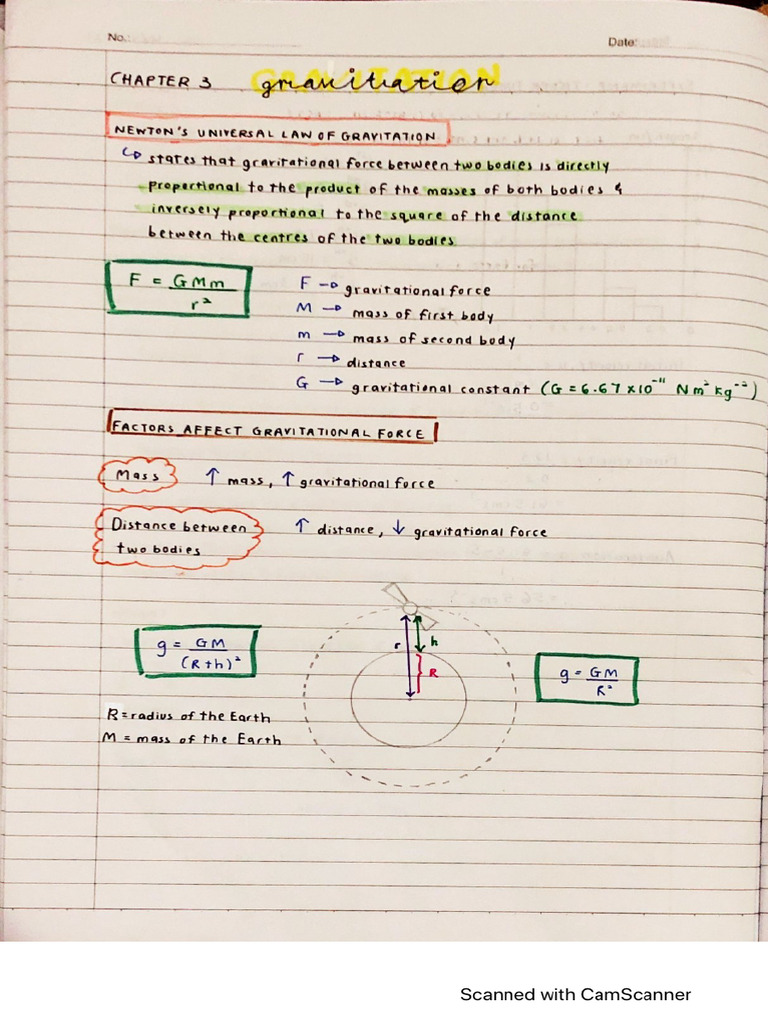 No.:
Date:
CHAPTER 3 GRAVITATION gravitation
NEWTON'S UNIVERSAL LAW OF GRAVITATION
↳ states that gravitational force between two bodies is directly
proportional to the product of the masses of both bodies &
inversely proportional to the square of the distance
between the centres of the two bodies
F = GMm / r²
F → gravitational force
M → mass of first body
m → mass of second body
r → distance
G → gravitational constant (G = 6.67 × 10⁻¹¹ N m² kg⁻²)
FACTORS AFFECT GRAVITATIONAL FORCE
Mass ↑ mass, ↑ gravitational force
Distance between ↑ distance, ↓ gravitational force
two bodies
r h
R
g = GM / (R+h)²
g = GM / R²
R = radius of the Earth
M = mass of the Earth
Scanned with CamScanner